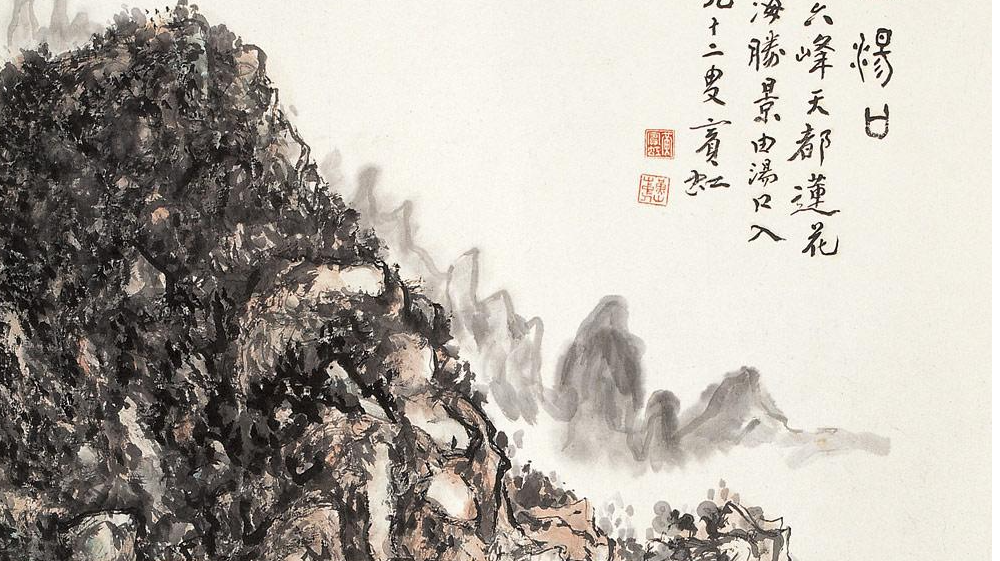 湯口
六峰天都蓮花
海勝景由湯口入
九十二叟賓虹